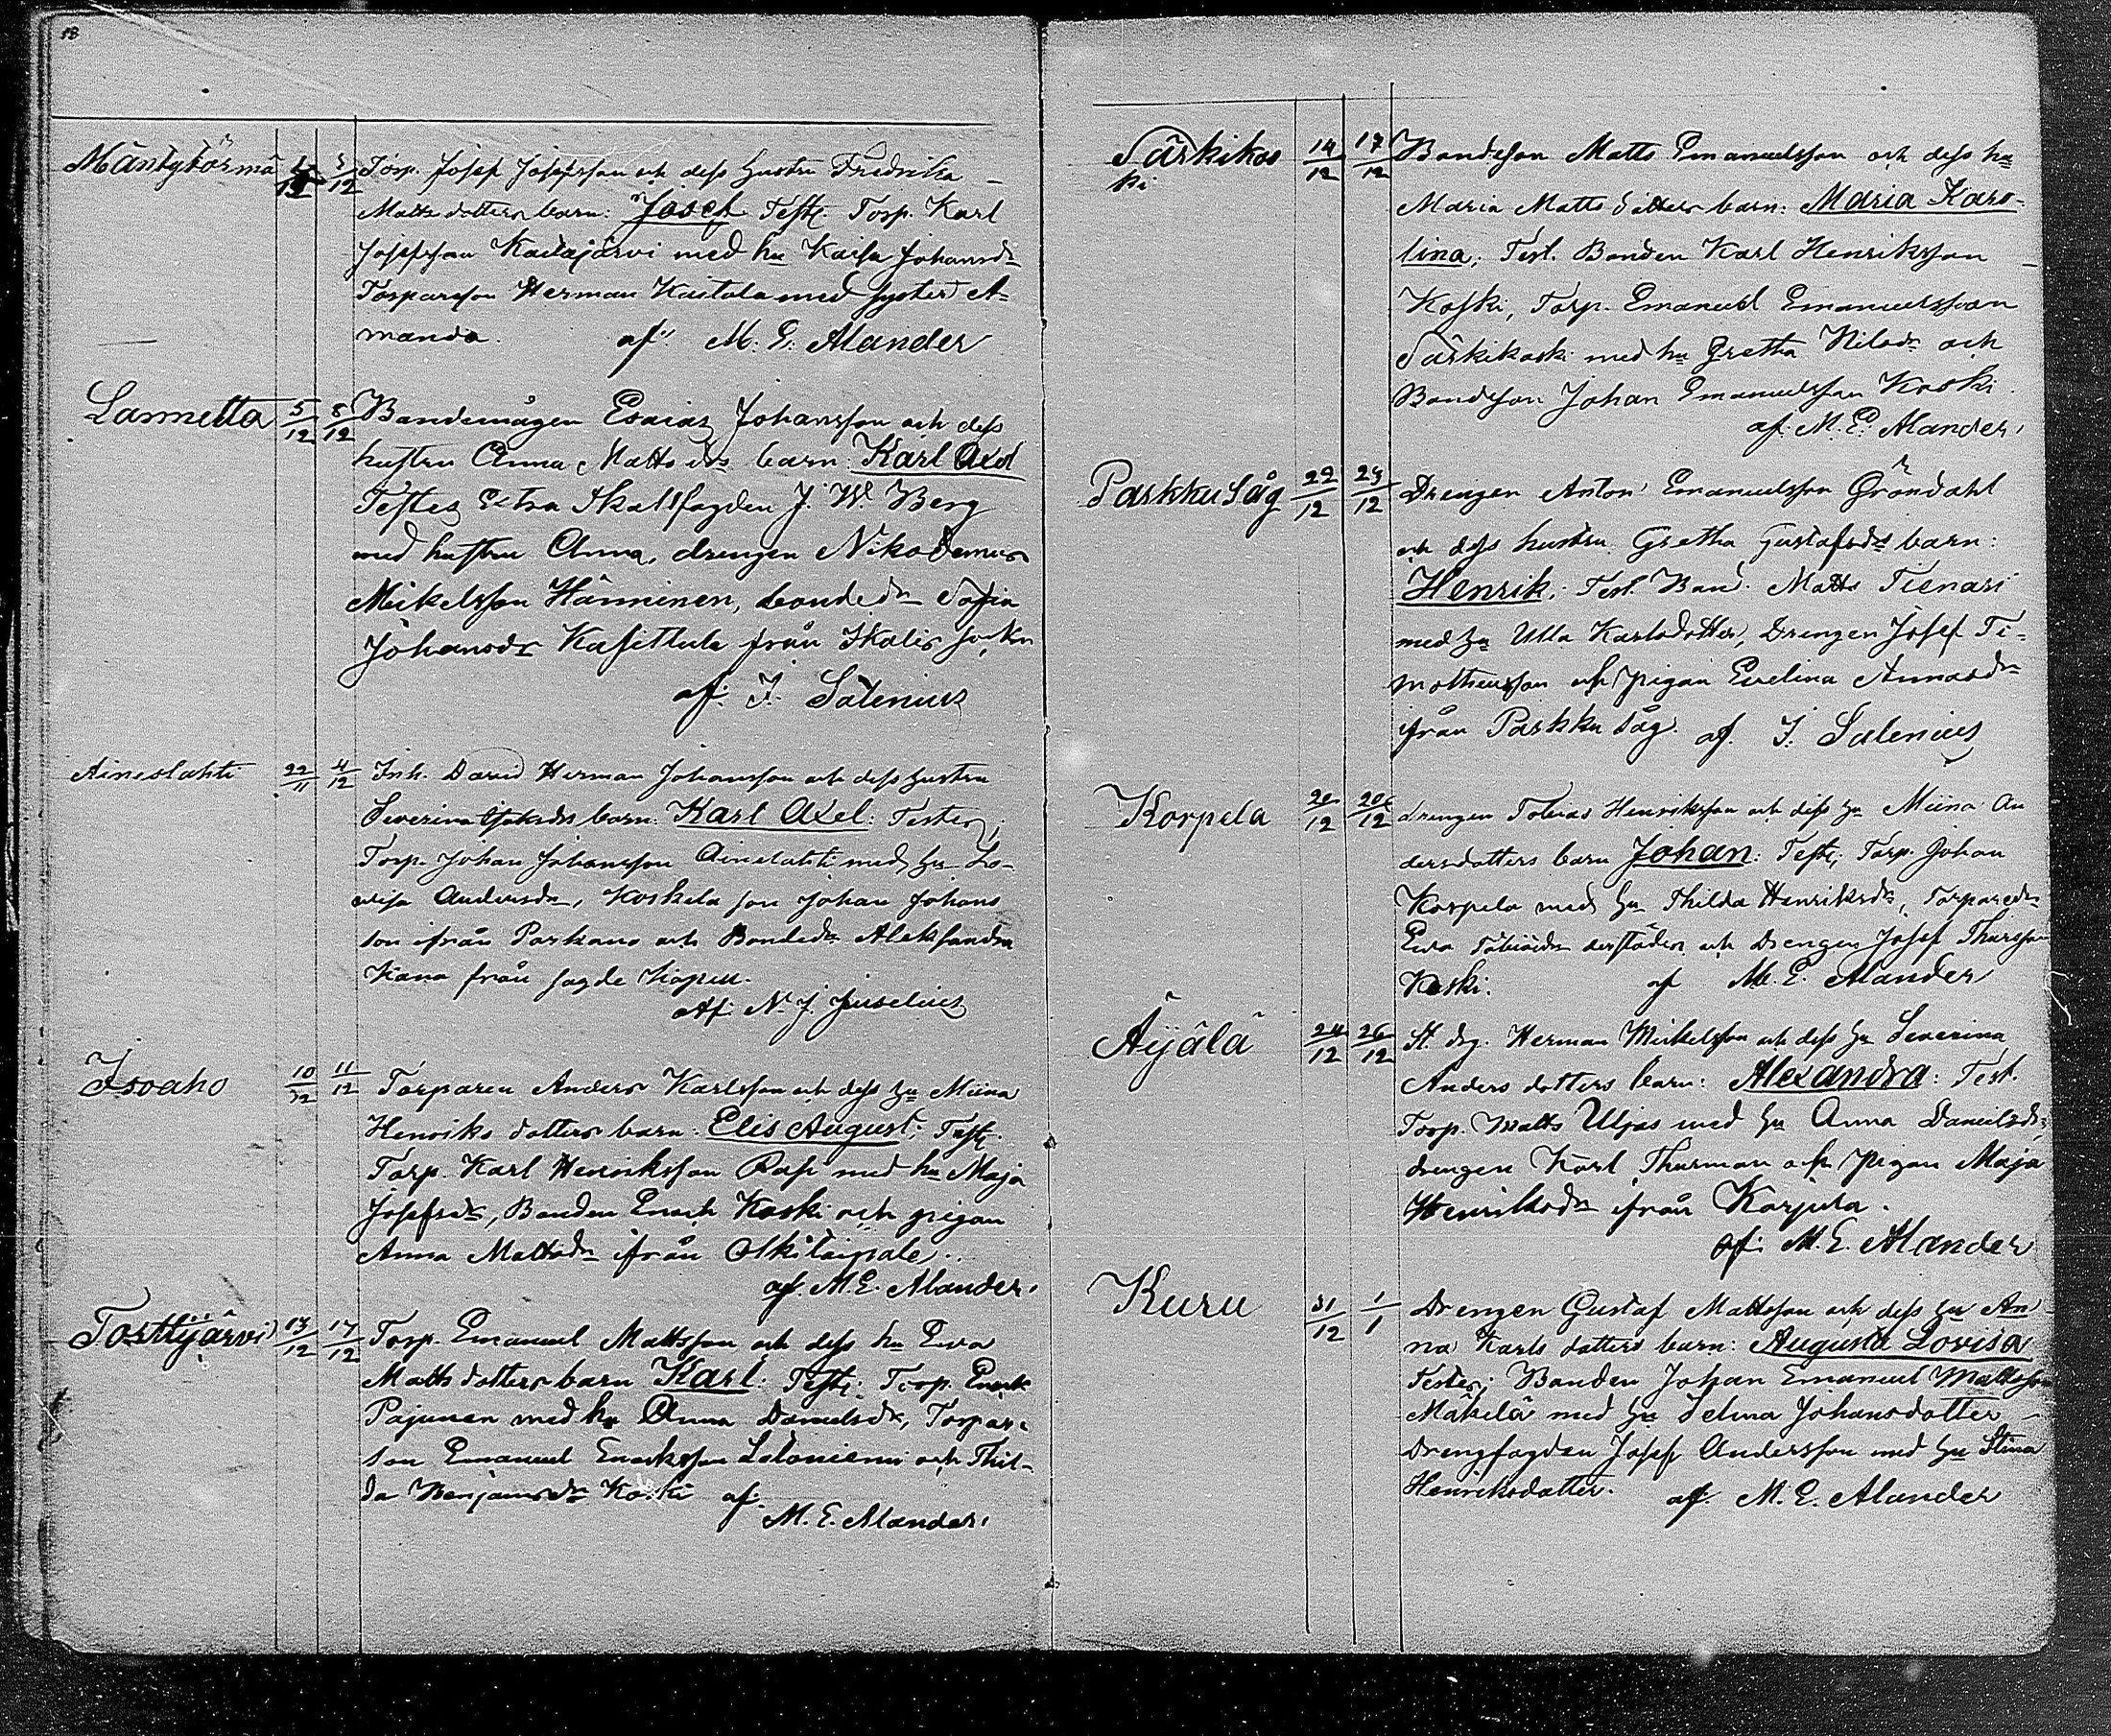 18
Mäntytörmä 1/12 3/12 Torp. Josef Josefsson och dess hustru Fredrika
Matts dotters barn: Josef Teste: Torp. Karl
Josefsson Kadajärvi med hu Kaisa Johansdr
Torpareson Herman Kaitala med syster A-
manda. af M. E. Alander
Lannetta 5/12 8/12 Bondemågen Esaias Johansson och dess
hustru Anna Matts drs barn Karl Axel
Testes Extra Skallfogden J. W. Berg
med hustru Anna, drengen Nikodemus
Mickelsson Hänninen, bondedr Sofia
Johansdr Kasittula från Ikalis socken
af: I. Salenius
Aineslahti 22/11 4/12 Inh. David Herman Johansson och dess hustru
Severina barn: Karl Axel: Testes;
Torp. Johan Johansson Ainelahti med hu Lo-
visa Andersdr, Koskela son Johan Johans
son ifrån Parkano och Bondedr Aleksandra
Kana från sagde Kapell.
Af: N. J. Juselius
Isoaho 10/12 11/12 Torparen Anders Karlsson och dess hu Miina
Henriks dotters barn: Elis August; Teste:
Torp. Karl Henriksson Rasi med hu Maja
Josefsdr, Bonden Enoch Koski och pigan
Anna Mattsdr ifrån Olkitaipale.
af. M. E. Alander.
Torttijärvi 13/12 17/12 Torp. Emanuel Mattsson och dess hu Eva
Matts dotters barn Karl: Teste: Torp. Enok
Pajunen med hu Anna Danielsdr, Torpar-
son Emanuel Enoksson Saloniemi och Thil-
da Benjamsdr Koski af.
M. E. Alander.
Särkikos 14/12 17/12 Bondeson Matts Emanuelsson och dess hu
ki
Maria Matts dotters barn: Maria Karo-
lina; Test. Bonden Karl Henriksson
Koski, Torp. Emanuel Emanuelsson
Särkikoski med hu Gretha Nilsdr och
Bondson Johan Emanuelsson Koski
af. M. E. Alander.
Parkku Såg 22/12 23/12 Drengen Anton Emanuelsson Gröndahl
och dess hustru Gretha Gustafsdrs barn:
Henrik; Test. Bond. Matts Tienari
med hu Ulla Karlsdotter, Drengen Josef Ti-
motheusson och pigan Evelina Annasdr
ifrån Parkku Såg. af. I. Salenius
Korpela 20/12 20/12 drengen Tobias Henriksson och dess hu Miina An
dersdotters barn Johan: Teste; Torp. Johan
Korpela med hu Thilda Henriksdr, Torparedr
Eva Tobiasdr derstädes och Drengen Josef Thursson
Koski. af M. E. Alander
Äijälä 24/12 26/12 St. drg. Herman Mickelsson och dess hu Severina
Anders dotters barn: Alexandra: Test.
Torp. Matts Uljas med hu Anna Danielsdr;
drengen Karl Thurman och pigan Maja
Henriksdr ifrån Korpela.
af: M. E. Alander
Kuru 31/12 1/1 Drengen Gustaf Mattsson och dess hu An
na Karls dotters barn: Augusta Lovisa
Testes; Bonden Johan Emanuel Mattsson
Mäkelä med hu Selma Johansdotter
Drengfogden Josef Andersson med hu Stina
Henriksdotter. af. M. E. Alander